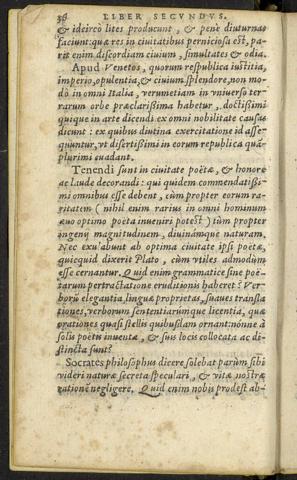 38 LIBER SECVNDVS.
& idcircò lites producunt, & penè diuturnas
faciunt: quæ res in ciuitatibus perniciosa est, pa-
rit enim discordiam ciuium, simultates & odia.
Apud Venetos, quorum respublica iustitia,
imperio, opulentia, & ciuium splendore, non mo-
dò in omni Italia, verumetiam in vniuerso ter-
rarum orbe præclarissima habetur, doctissimi
quique in arte dicendi ex omni nobilitate causas
dicunt: ex quibus diutina exercitatione id asse-
quuntur, vt disertissimi in eorum republica quā-
plurimi euadant.
Tenendi sunt in ciuitate poëtæ, & honore
ac laude decorandi: qui quidem commendatissi-
mi omnibus esse debent, cùm propter eorum ra-
ritatem (nihil enim rarius in omni hominum
æuo optimo poëta inueniri potest) tùm propter
ingenij magnitudinem, diuinámque naturam.
Nec exulabunt ab optima ciuitate ipsi poëtæ,
quicquid dixerit Plato, cùm vtiles admodùm
esse cernantur. Quid enim grammatice sine poë-
tarum pertractatione eruditionis haberet? Ver-
borū elegantia, linguæ proprietas, suaues transla
tiones, verborum sententiarumque licentia, quæ
orationes quasi stellis quibusdam ornant: nónne à
solis poëtis inuentæ, & suis locis collocatæ ac di-
stincta sunt?
Socrates philosophus dicere solebat parùm sibi
videri naturæ secreta speculari, & vitæ nostræ
rationē negligere. Quid enim nobis prodest ab-